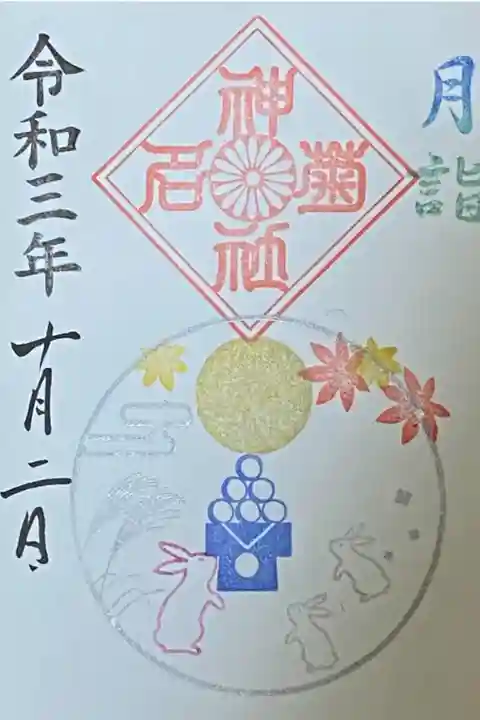 月詣
菊名神社
令和三年十月二日